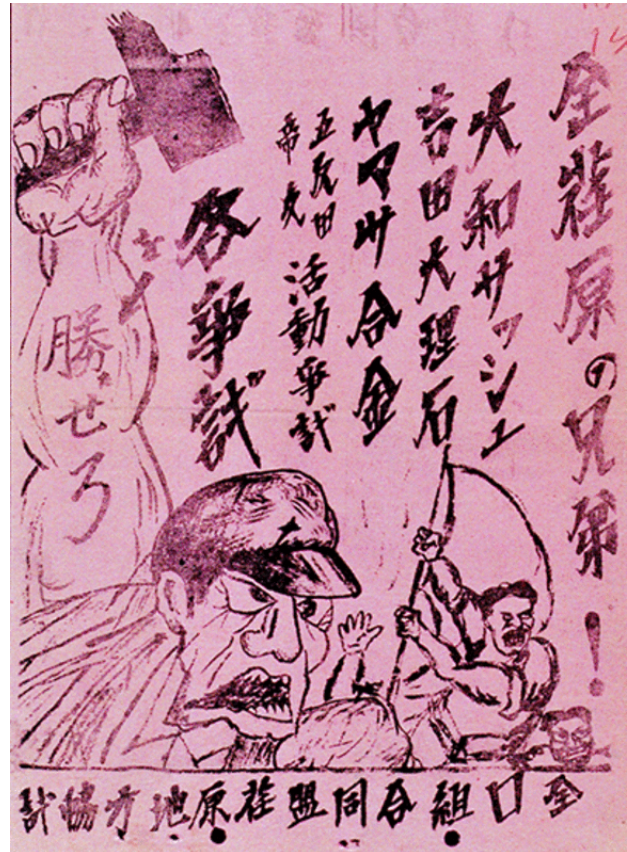 全荏原の兄弟！
大和サッシュ
吉田大理石
ヤマサ合金
五反田
活動爭議
各爭議
を
勝せろ
全口組合同盟荏原地方協議